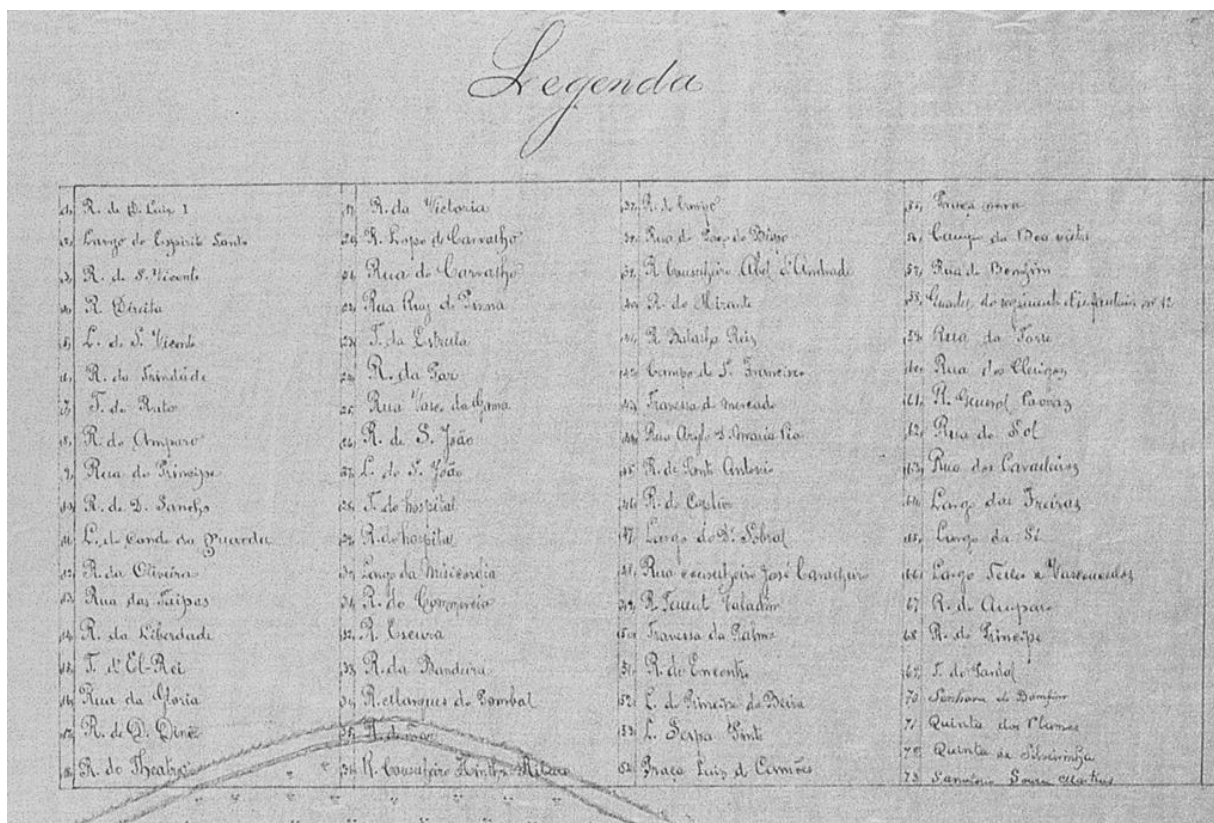 Legenda
1, R. de D. Luiz I
2, Largo do Espirito Santo
3, R. de S. Vicente
4, R. Direita
5, L. de S. Vicente
6, R. da Trindade
7, T. do Rato
8, R. do Amparo
9, Rua do Principe
10, R. de D. Sancho
11, L. do Conde da Guarda
12, R. da Oliveira
13, Rua das Taipas
14, R. da Liberdade
15, T. d'El-Rei
16, Rua da Gloria
17, R. de D. Diniz
18, R. do Theatro
19, R. da Victoria
20, R. Lopo de Carvalho
21, Rua do Carvalho
22, Rua Ruy de Pinna
23, T. da Estrela
24, R. da Paz
25, Rua Vasco da Gama
26, R. de S. João
27, L. de S. João
28, T. do hospital
29, R. do hospital
30, Largo da Misericordia
31, R. do Commercio
32, R. Escura
33, R. da Bandeira
34, R. Marques de Pombal
35, R. do
36, R. Conselheiro Hintze Ribeiro
37, R. do
38, Rua do Poço do Bispo
39, R. Conselheiro Abel d'Andrade
40, R. do Mirante
41, R. Batalha Reis
42, Campo de S. Francisco
43, Travessa do mercado
44, Rua Asylo D. Maria Pia
45, R. de Santo Antonio
46, R. do
47, Largo do Dr. Sobral
48, Rua conselheiro José
49, R. Tenente Valadim
50, Travessa da Palma
51, R. do Encontro
52, L. do Principe da Beira
53, L. Serpa Pinto
54, Praça Luiz de Camões
55, Praça nova
56, Campo da Boa vista
57, Rua do Bomfim
58, Quartel do regimento d'infantaria nº 12
59, Rua da Torre
60, Rua dos Clerigos
61, R. General Povoas
62, Rua do Sol
63, Rua dos Cavaleiros
64, Largo das Freiras
65, Largo da Sé
66, Largo Teles e Vasconcelos
67, R. do Amparo
68, R. do Principe
69, T. do
70, Senhora do Bomfim
71, Quinta dos
72, Quinta da
73, Sanatorio Souza Martins